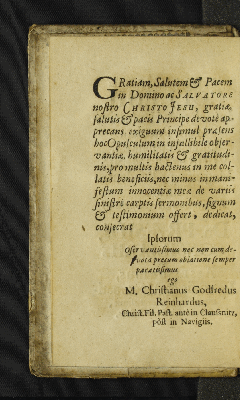 GRatiam, Salutem & Pacem
in Domino ac SALVATORE
nostro CHRISTO JESU, gratiæ,
salutis & pacis Principe devotè ap-
precans exiguum insimul præsens
hoc Opusculum in infallibile obser-
vantiæ, humilitatis & gratitudi-
nis, pro multis hactenus in me col-
latis beneficiis, nec minus in mani-
festum innocentiæ meæ de variis
sinistrè carptis sermonibus, signum
& testimonium offert, dedicat,
consecrat
Ipsorum
Observantissimus nec non cum de-
vota precum oblatione semper
paratissimus
ego
M. Christianus Godfredus
Reinhardus,
Christ. Fil. Past. antè in
pòst in Navigiis.